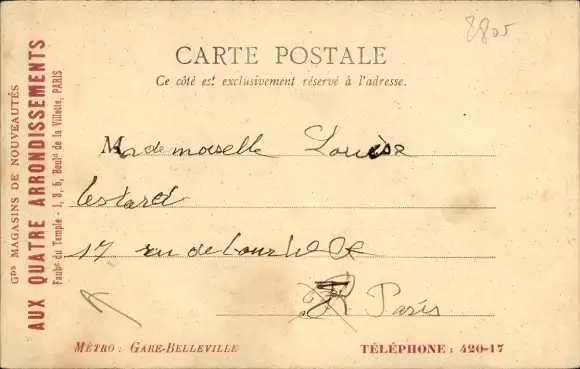 8805
CARTE POSTALE
Ce côté est exclusivement réservé à l'adresse.
Mademoiselle Louise
17 rue de
Paris
GDS MAGASINS DE NOUVEAUTÉS
AUX QUATRE ARRONDISSEMENTS
Faubg du Temple - 1, 3, 5, Bould de la Villette, PARIS
MÉTRO : GARE-BELLEVILLE
TÉLÉPHONE : 420-17